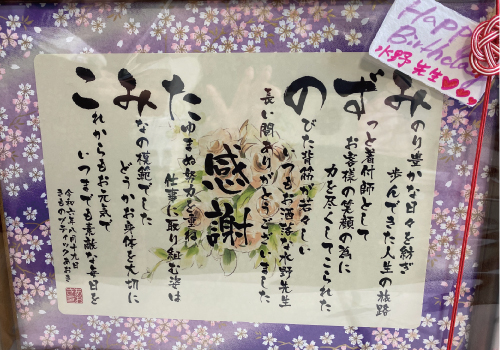 Happy
Birthday
水野先生♥♥♥
みのり豊かな日々を紡ぎ
歩んできた人生の旅路
ずっと着付師として
お客様の笑顔の為に
力を尽くしてこられた
のびた背筋が若々しい
いつもお洒落な水野先生
長い間ありがとうございました
感謝
たゆまぬ努力を重ね
仕事に取り組む姿は
みなの模範でした
どうかお身体を大切に
これからもお元気で
いつまでも素敵な毎日を
令和六年八月十九日
きものブティックあおき